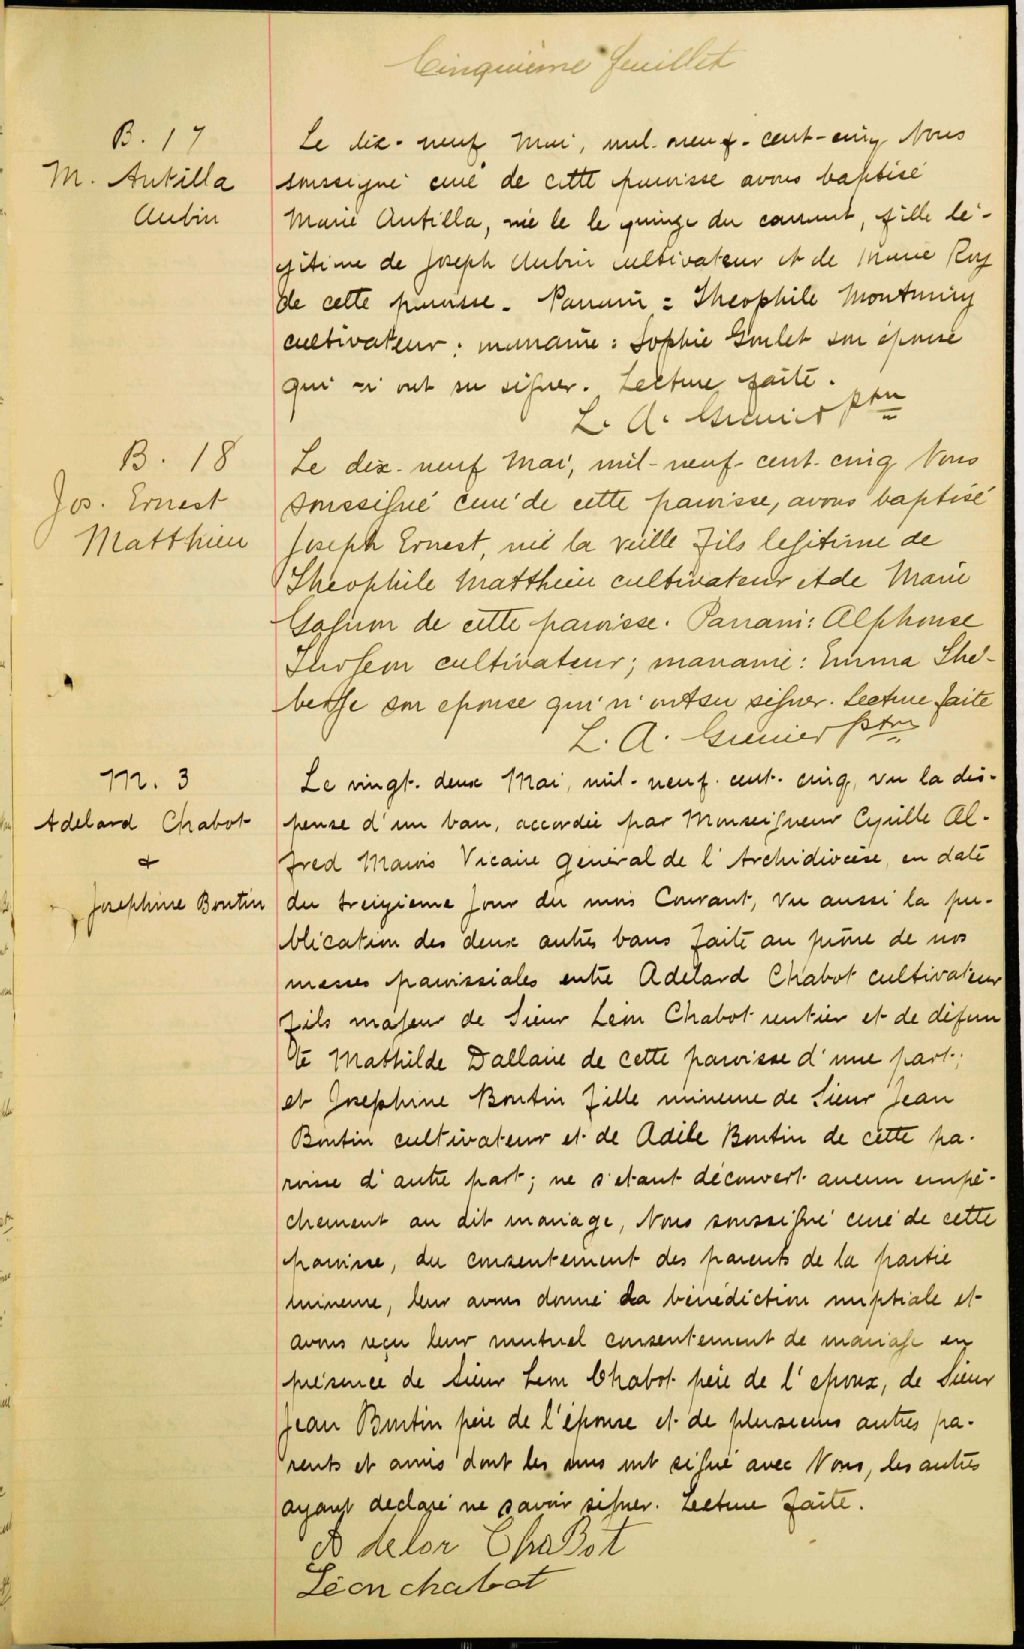 Cinquième feuillet
B. 17
M. Antilla
Aubin
Le dix-neuf Mai, mil-neuf-cent-cinq Nous
soussigné curé de cette paroisse avons baptisé
Marie Antilla, née le le quinze du courant, fille lé-
gitime de Joseph Aubin cultivateur et de Marie Roy
de cette paroisse. Parrain = Théophile Montminy
cultivateur; marraine: Sophie Goulet son épouse
qui n'ont su signer. Lecture faite.
L. A. Grenier ptre
B. 18
Jos. Ernest
Matthieu
Le dix-neuf Mai, mil-neuf-cent-cinq Nous
soussigné curé de cette paroisse, avons baptisé
Joseph Ernest, né la veille fils legitime de
Théophile Matthieu cultivateur et de Marie
Gagnon de cette paroisse. Parrain: Alphonse
Turgeon cultivateur; marraine: Emma Thé-
berge son epouse qui n'ont su signer. Lecture faite
L. A. Grenier ptre
M. 3
Adelard Chabot
+
Josephine Boutin
Le vingt-deux Mai, mil-neuf-cent-cinq, vu la dis-
pense d'un ban, accordée par Monseigneur Cyrille Al-
fred Marois Vicaire général de l'Archidiocèse, en date
du treizieme jour du mois Courant, vu aussi la pu-
blication des deux autres bans faite au prône de nos
messes paroissiales entre Adelard Chabot cultivateur
fils majeur de Sieur Léon Chabot rentier et de défun
te Mathilde Dallaire de cette paroisse d'une part;
et Josephine Boutin fille mineure de Sieur Jean
Boutin cultivateur et de Adèle Boutin de cette pa-
roisse d'autre part; ne s'etant découvert aucun empê-
chement au dit mariage, Nous soussigné curé de cette
paroisse, du consentement des parents de la partie
mineure, leur avons donné la bénédiction nuptiale et
avons reçu leur mutuel consentement de mariage en
présence de Sieur Leon Chabot père de l'epoux, de Sieur
Jean Boutin père de l'épouse et de plusieurs autres pa-
rents et amis dont les uns ont signé avec Nous, les autres
ayant declaré ne savoir signer. Lecture faite.
Adelor ChaBot
Léon chabot